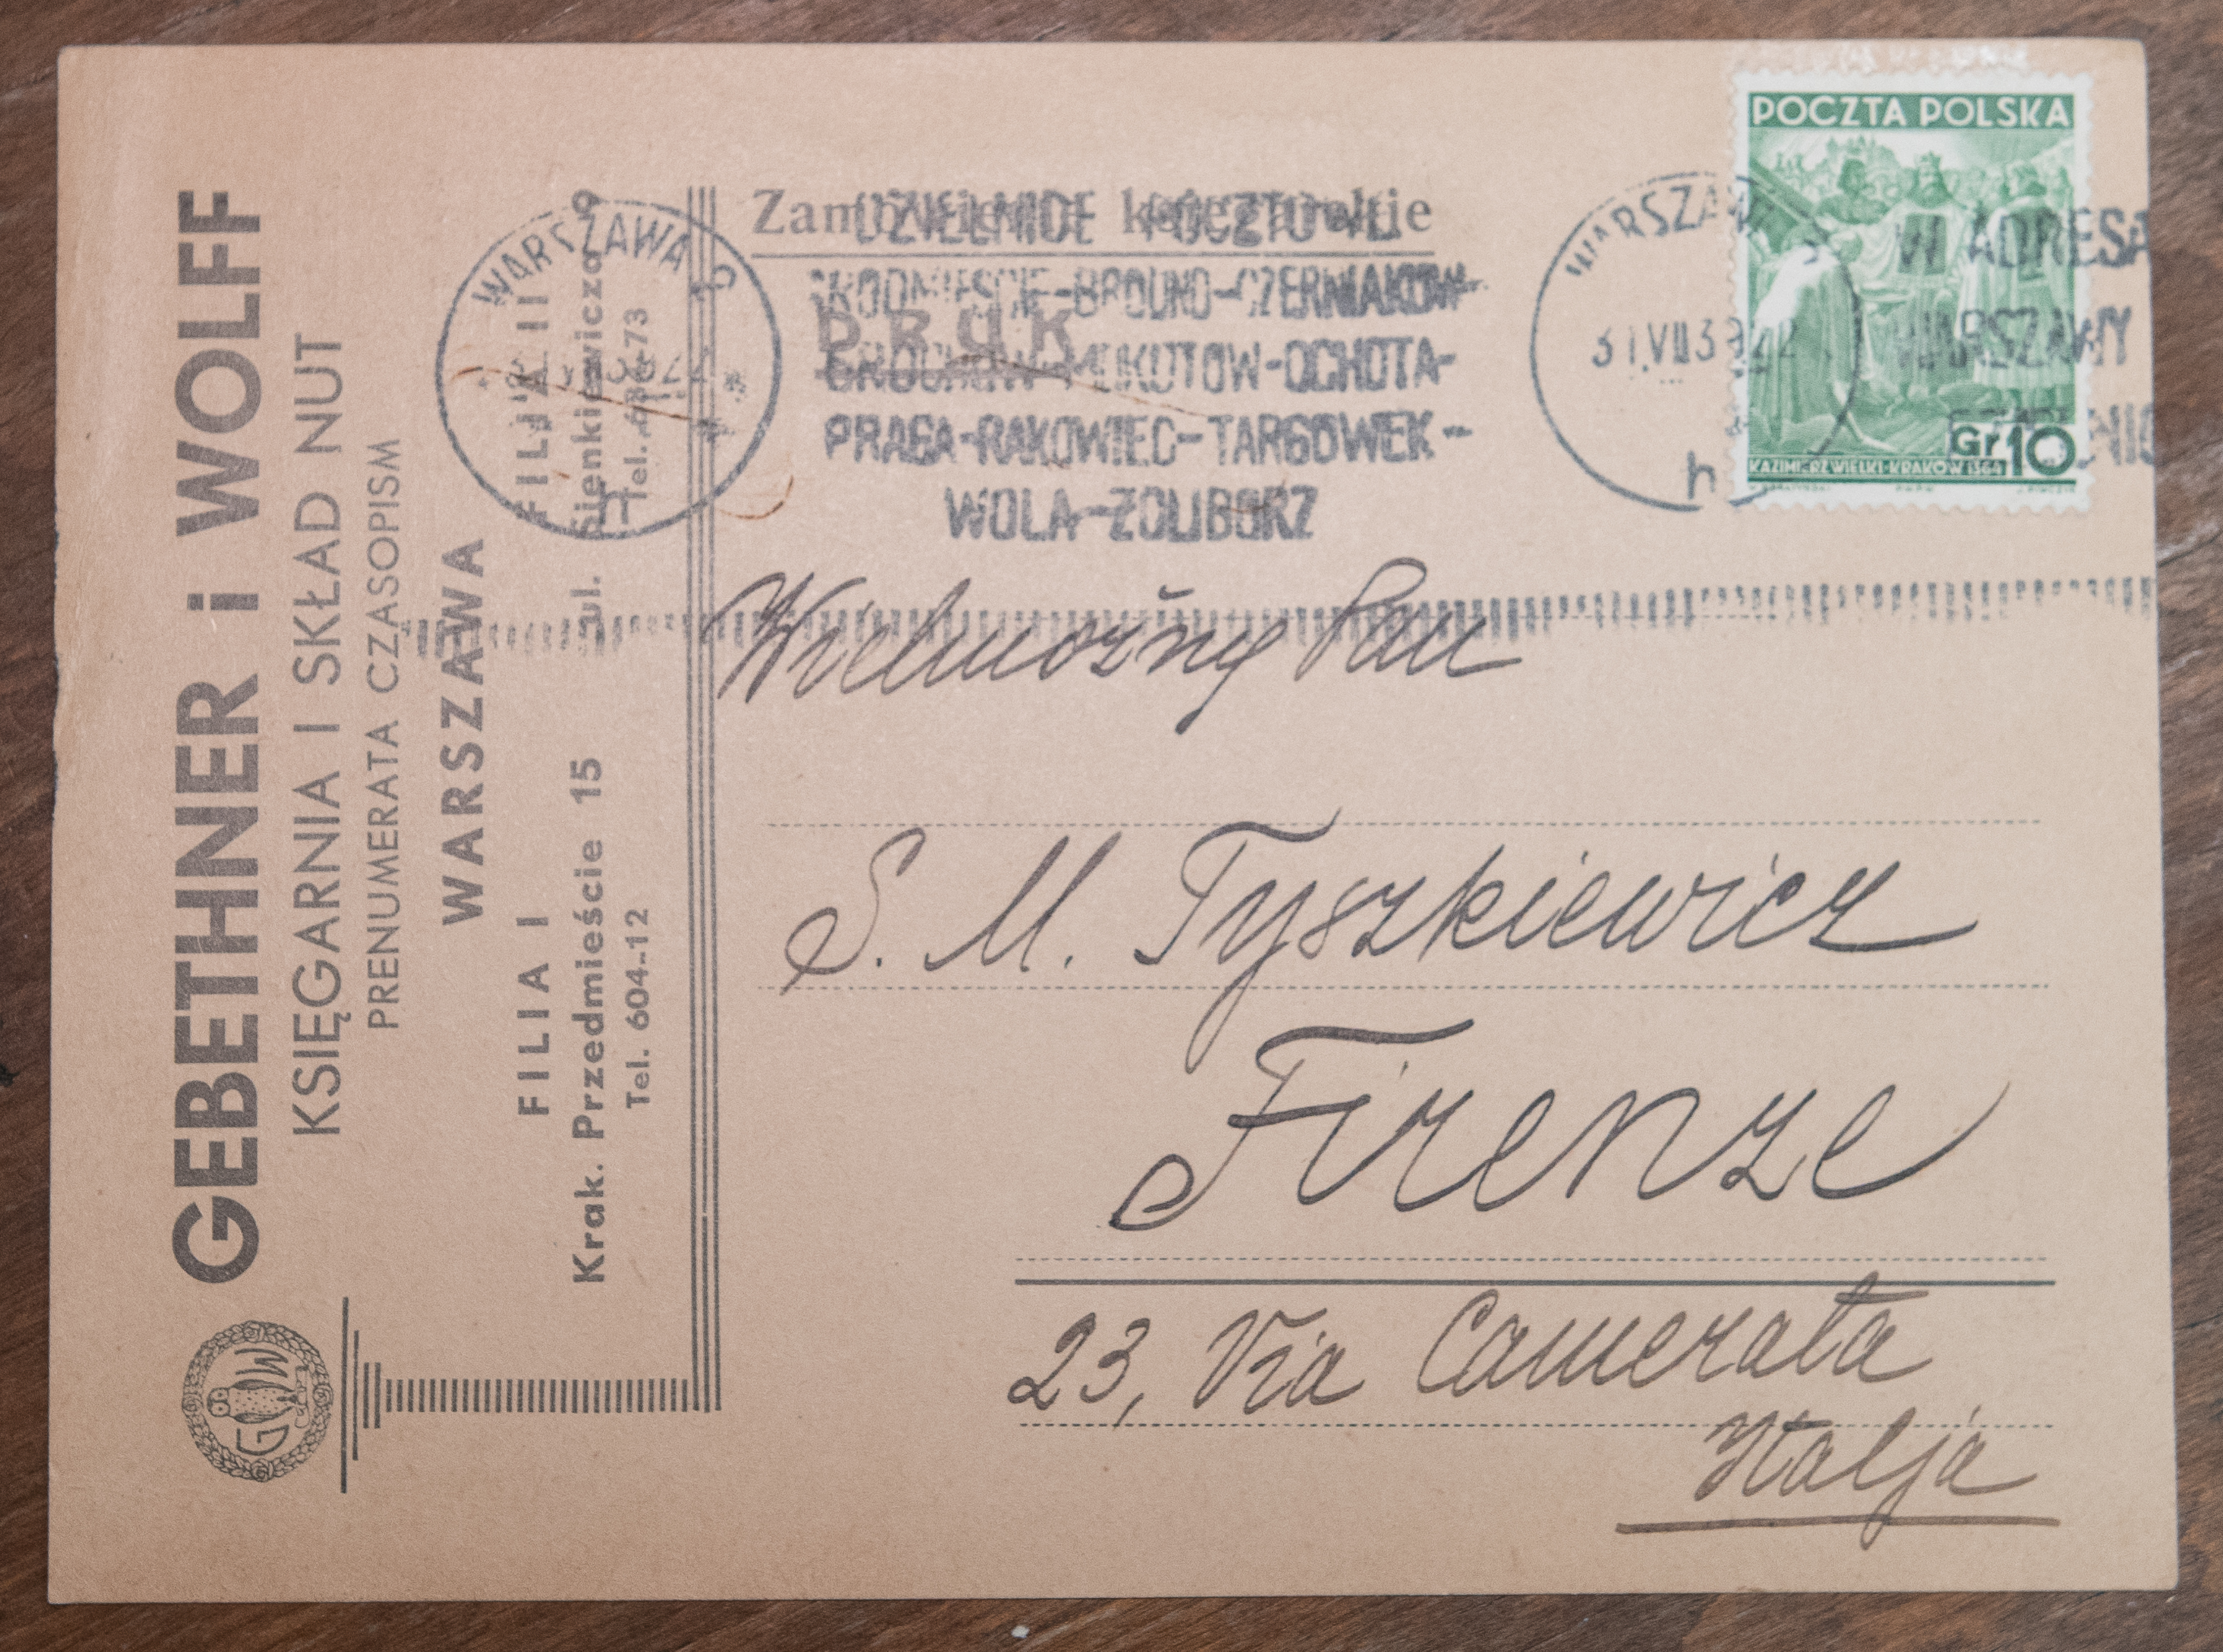 GEBETHNER i WOLFF
KSIĘGARNIA I SKŁAD NUT
PRENUMERATA CZASOPISM
WARSZAWA
FILIA I
Krak. Przedmieście 15
Tel. 604-12
FILIA II
ul. Sienkiewicza 9
Tel.
GW
Zamówienie księgarskie
DRUK
WARSZAWA 2
DZIELNICE POCZTOWE
ŚRÓDMIEŚCIE-BRÓDNO-CZERNIAKÓW-
GROCHÓW-MOKOTÓW-OCHOTA-
PRAGA-RAKOWIEC-TARGÓWEK-
WOLA-ŻOLIBORZ
WARSZAWA
31.VII39.22
h
W ADRESA
WARSZAWY
POCZTA POLSKA
Gr 10
KAZIMIERZ WIELKI-KRAKÓW 1364
Wielmożny Pan
S. M. Tyszkiewicz
Firenze
23, Via Camerata
Italja